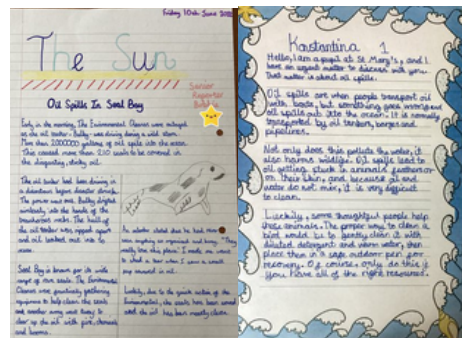 Friday 10th June
The Sun
Senior
Reporter
Oil Spills In Seal Bay
Early in the morning, The Environmental Cleaners were
as the oil tanker - Bulky - was driving during a wild storm.
More than 2000000 gallons of oil spilt into the ocean.
This caused more than 210 seals to be covered in
the disgusting, sticky oil.
The oil tanker had been driving in
a downturn before disaster struck.
The power was out. Bulky
into the hands of the
treacherous rocks. The hull of
the oil tanker was ripped apart
and oil leaked out into the
ocean.
Seal Bay is known for its wide
range of rare seals. The Environmental
Cleaners were gathering
equipment to help clean the seals
and another army went busy to
clear up the oil with fire, chemicals
and booms.
I was
when I saw a small
pup covered in oil.
Luckily, due to the quick action of the
Environmental, the seals have been saved
and the oil has been mostly clean.
Konstantina 1
Hello, I am a pupil at St Mary's, and I
have an urgent matter to discuss with you.
That matter is about oil spills.
Oil spills are when people transport oil
with boats, but something goes wrong and
oil spills out into the ocean. It is normally
transported by oil tankers, barges and
pipelines.
Not only does this pollute the water, it
also harms wildlife. Oil spills lead to
oil getting stuck in animals feathers or
on their skin, and because oil and
water do not mix, it is very difficult
to clean.
Luckily, some thoughtful people help
these animals. The proper way to clean a
bird would be to gently clean it with
diluted detergent and warm water, then
place them in a safe outdoor pen for
recovery. Of course, only do this if
you have all of the right resources.